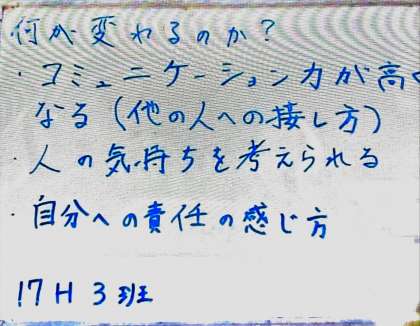 何が変わるのか?
・コミュニケーション力が高く
なる(他の人への接し方)
・人の気持ちを考えられる
・自分への責任の感じ方
17H 3班